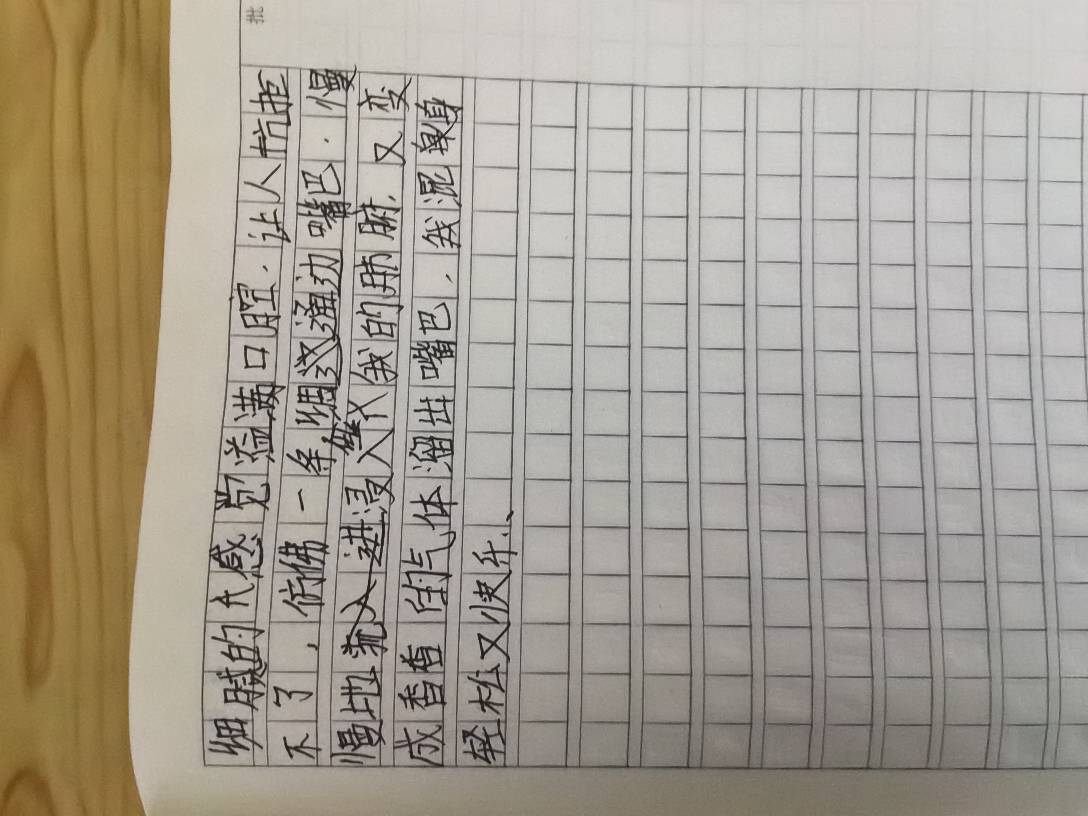 批
细腻的气感觉溢满口腔，让人抗拒
不了，仿佛一条细流通动嘴巴．慢
慢地浸入我的肺腑，又变
成香香的气体溜出嘴巴，我浑身
轻松又快乐、